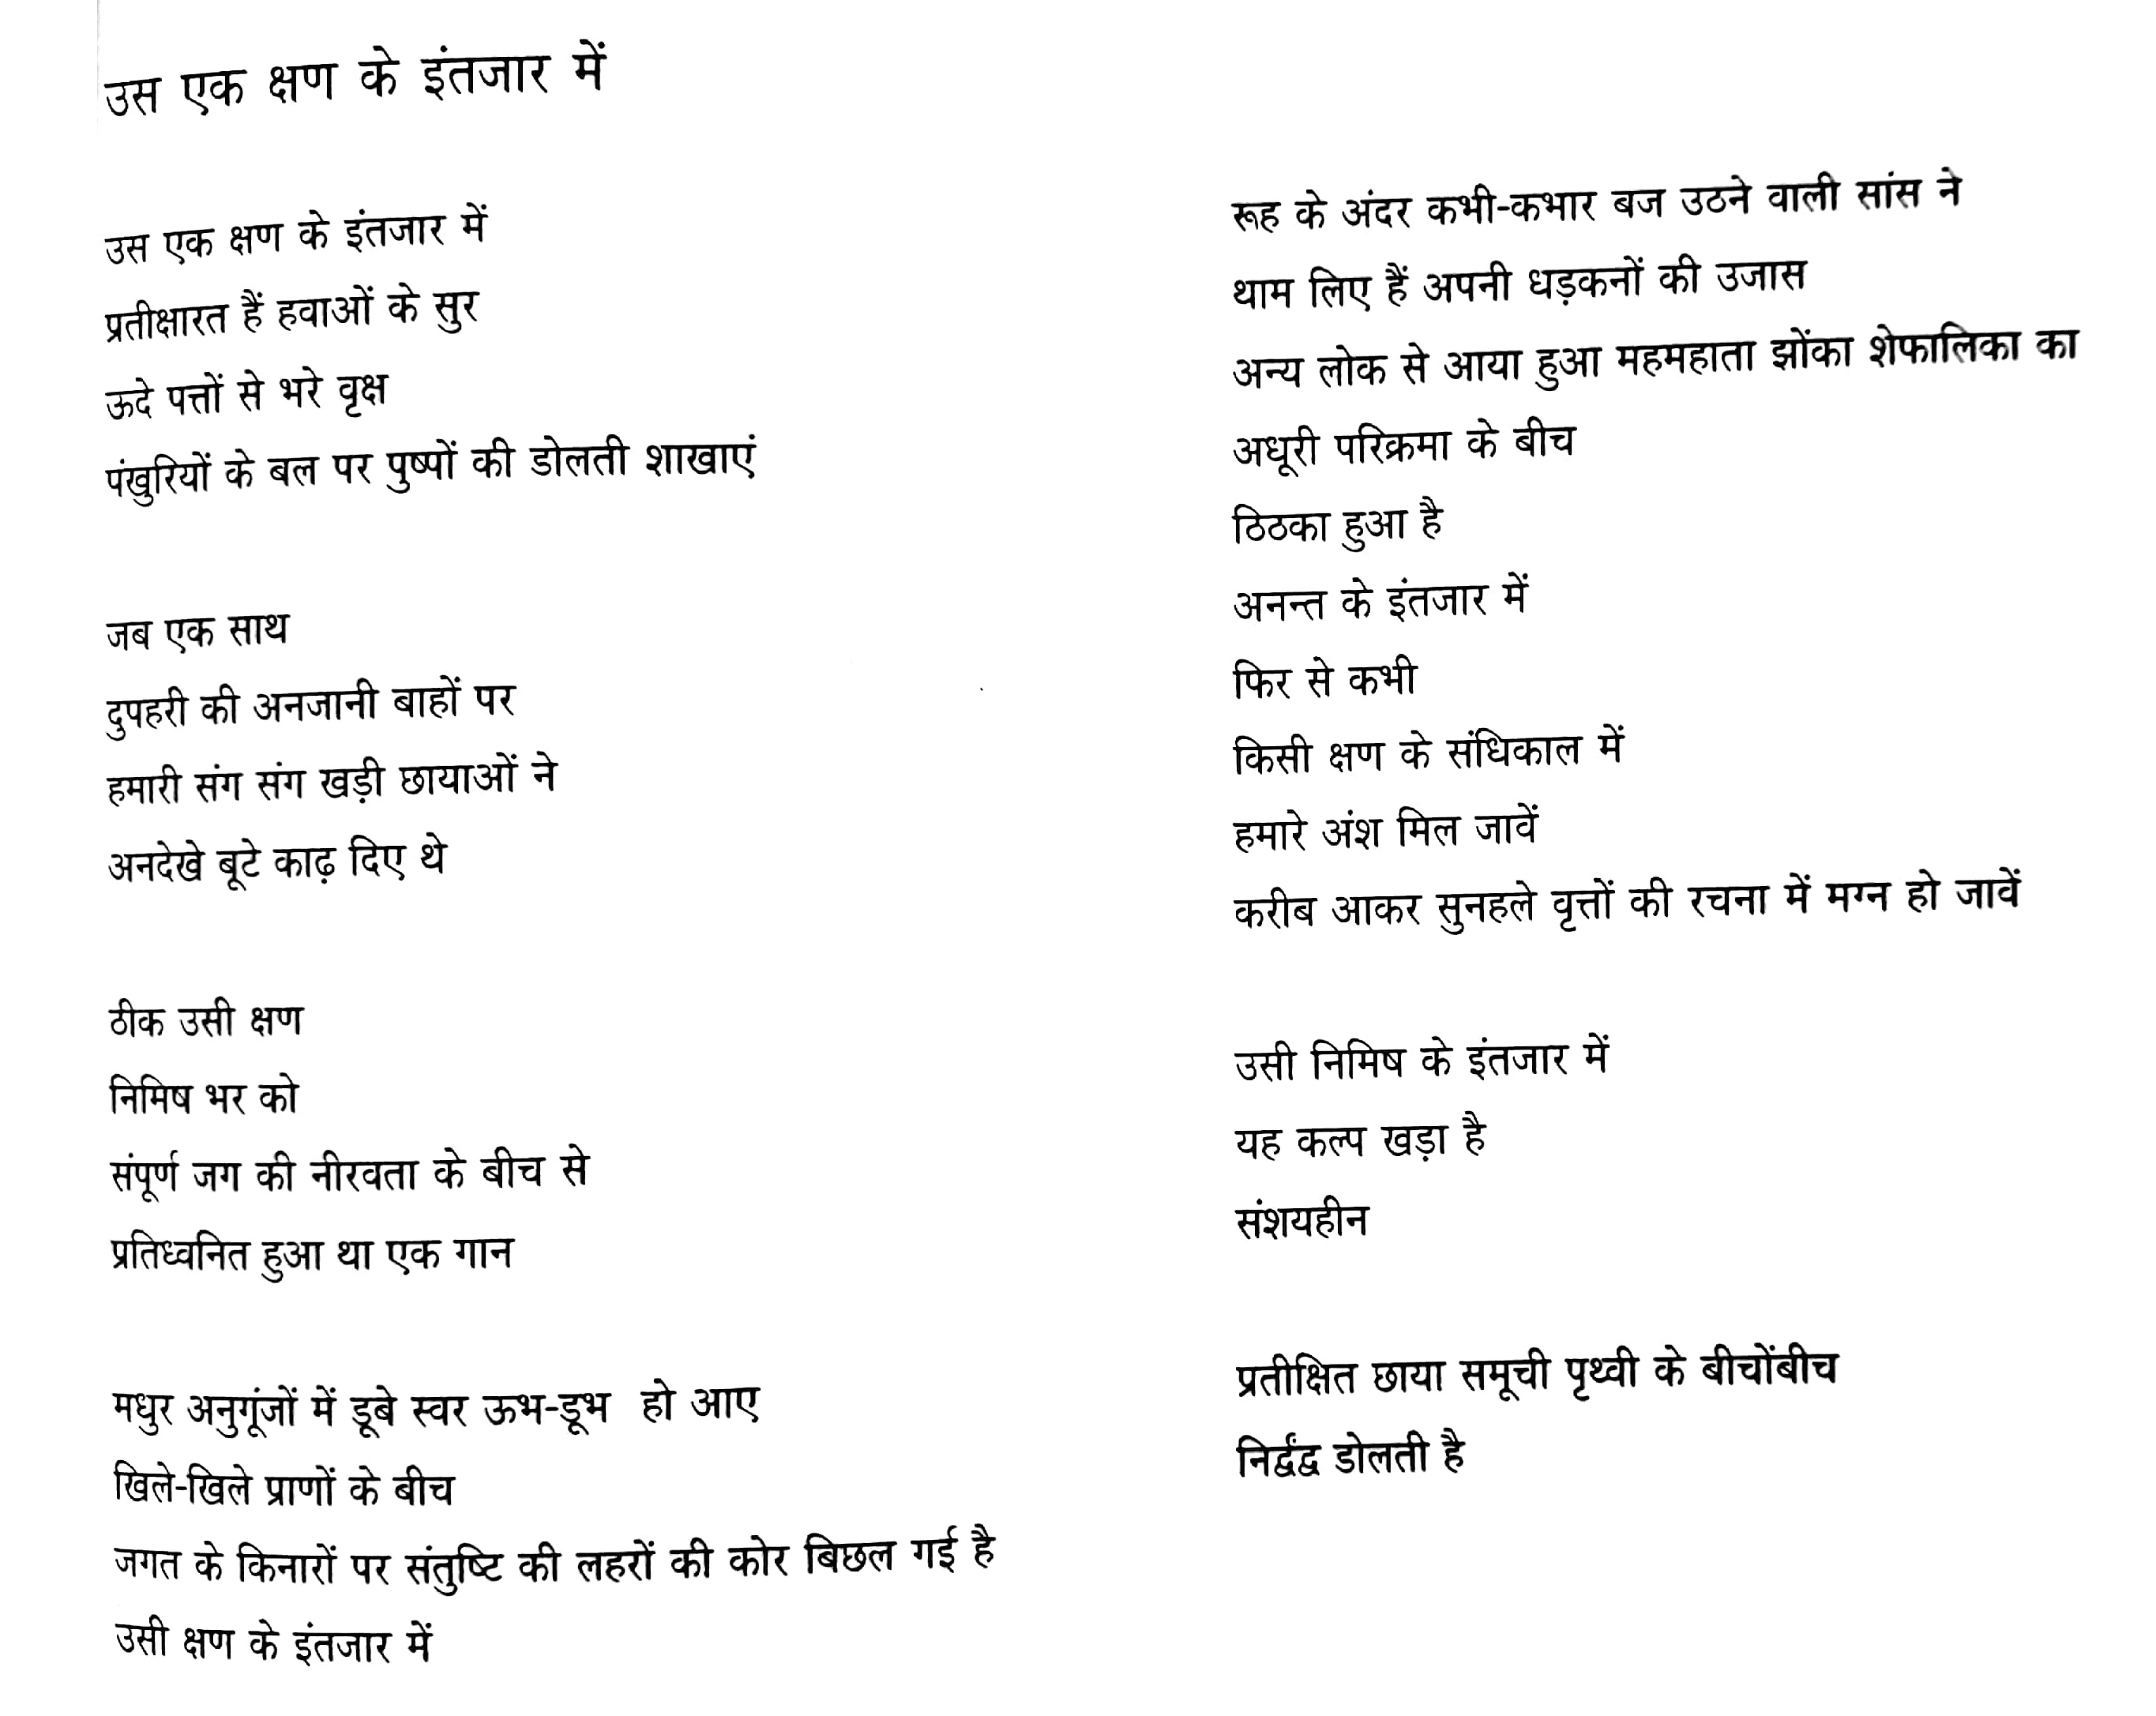 उस एक क्षण के इंतजार में
उस एक क्षण के इंतजार में
प्रतीक्षारत हैं हवाओं के सुर
ऊदे पत्तों से भरे वृक्ष
पंखुरियों के बल पर पुष्पों की डोलती शाखाएं
जब एक साथ
दुपहरी की अनजानी बाहों पर
हमारी संग संग खड़ी छायाओं ने
अनदेखे बूटे काढ़ दिए थे
ठीक उसी क्षण
निमिष भर को
संपूर्ण जग की नीरवता के बीच से
प्रतिध्वनित हुआ था एक गान
मधुर अनुगूंजों में डूबे स्वर ऊभ-डूभ हो आए
खिले-खिले प्राणों के बीच
जगत के किनारों पर संतुष्टि की लहरों की कोर बिछल गई है
उसी क्षण के इंतजार में
रूह के अंदर कभी-कभार बज उठने वाली सांस ने
थाम लिए हैं अपनी धड़कनों की उजास
अन्य लोक से आया हुआ महमहाता झोंका शेफालिका का
अधूरी परिक्रमा के बीच
ठिठका हुआ है
अनन्त के इंतजार में
फिर से कभी
किसी क्षण के संधिकाल में
हमारे अंश मिल जावें
करीब आकर सुनहले वृत्तों की रचना में मग्न हो जावें
उसी निमिष के इंतजार में
यह कल्प खड़ा है
संशयहीन
प्रतीक्षित छाया समूची पृथ्वी के बीचोंबीच
निर्द्वंद्व डोलती है